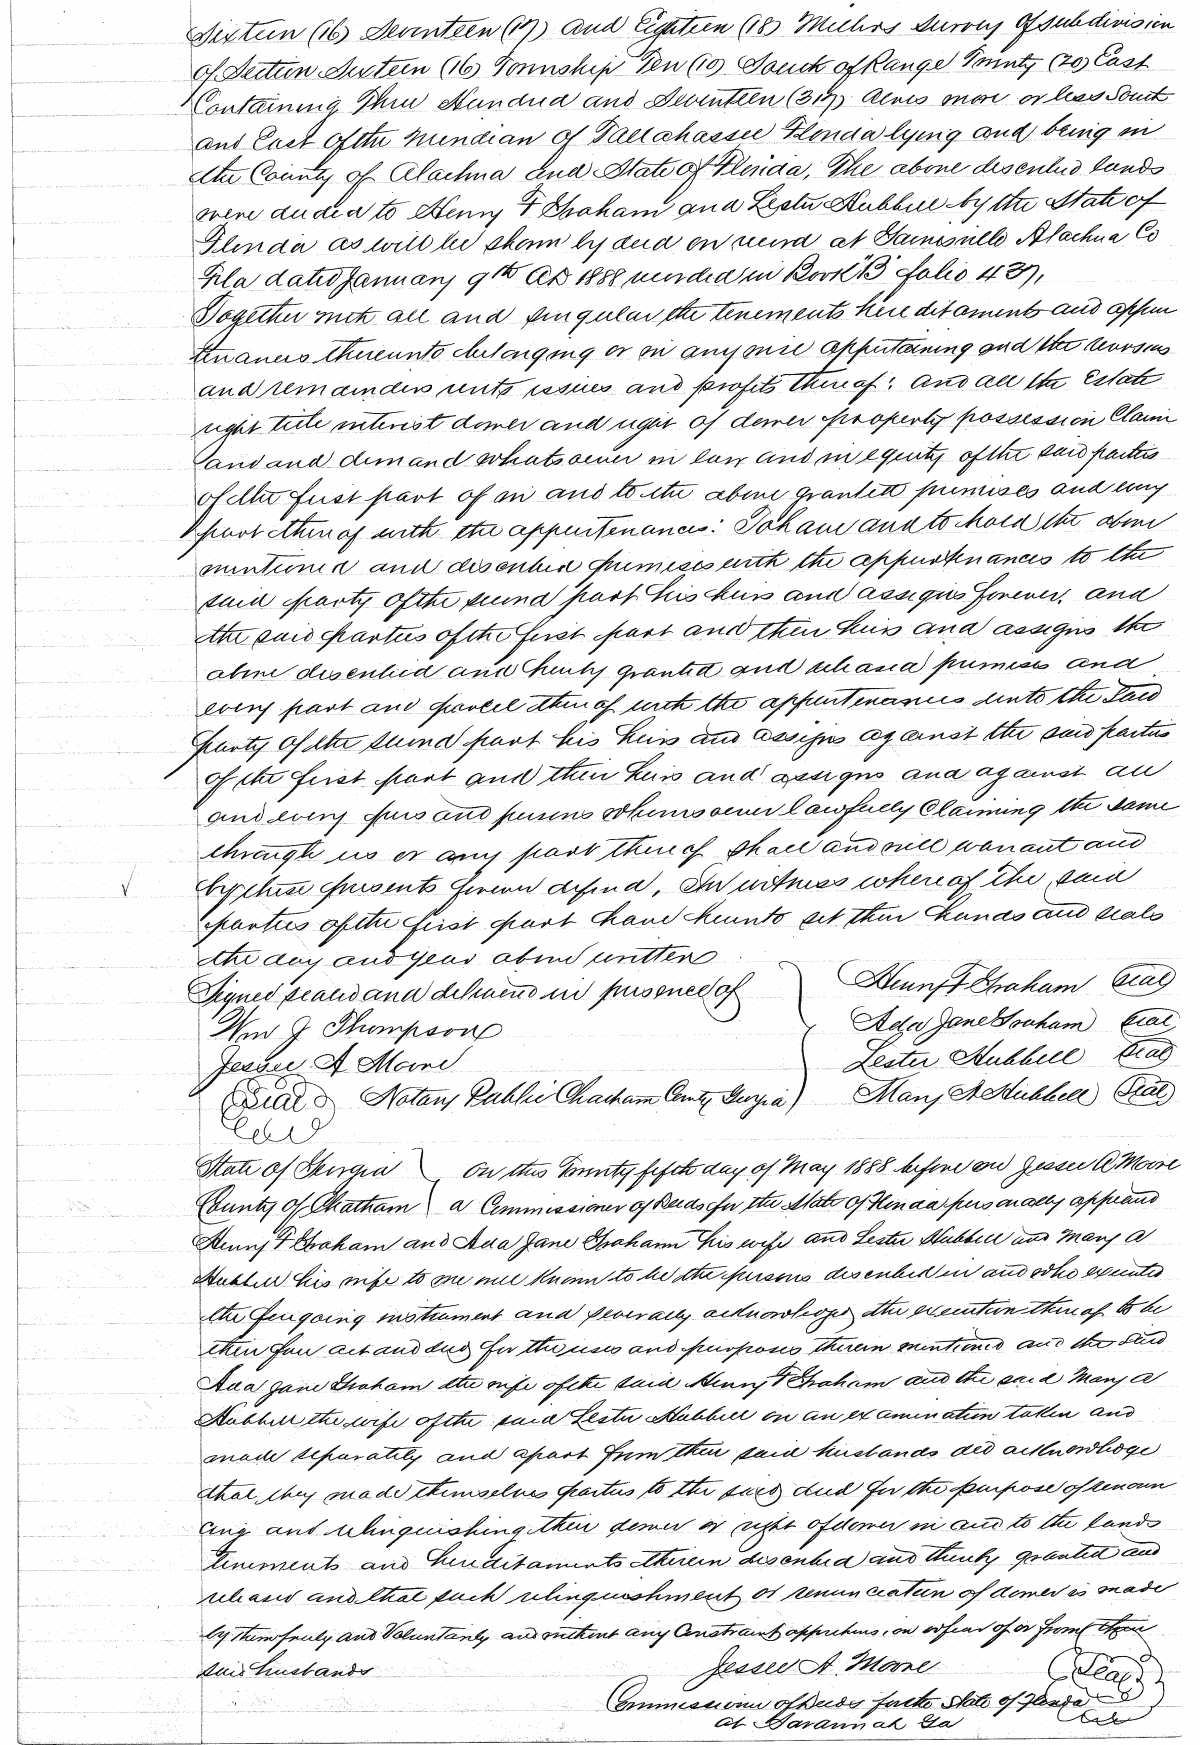 Sixteen (16) Seventeen (17) and Eighteen (18) Millers Survey of subdivision
of Section Sixteen (16) Township Ten (10) South of Range Twenty (20) East
Containing Three Hundred and Seventeen (317) Acres more or less South
and East of the Meridian of Tallahassee Florida lying and being in
the County of Alachua and State of Florida, The above described lands
were deeded to Henry F Graham and Lester Hubbell by the State of
Florida as will be shown by deed on record at Gainesville Alachua Co
Fla dated January 9th AD 1888 recorded in Book "B" folio 437,
Together with all and singular the tenements hereditaments and appur
tenances thereunto belonging or in anywise appertaining and the reversions
and remainders rents issues and profits thereof: And all the Estate
right title interest dower and right of dower property possession Claim
and and demand whatsoever in law and in equity of the said parties
of the first part of in and to the above granted premises and every
part thereof with the appurtenances: To have and to hold the above
mentioned and described premises with the appurtenances to the
said party of the second part his heirs and assigns forever, and
the said parties of the first part and their heirs and assigns the
above described and hereby granted and released premises and
every part and parcel thereof with the appurtenances unto the said
party of the second part his heirs and assigns against the said parties
of the first part and their heirs and assigns and against all
and every pers and persons whomsoever lawfully Claiming the same
through us or any part thereof shall and will warrant and
by these presents forever defend, In witness whereof the said
parties of the first part have hereunto set their hands and seals
the day and year above written
Signed sealed and delivered in presence of
Henry F Graham Seal
Wm J Thompson
Ada Jane Graham Seal
Jesse A Moore
Lester Hubbell Seal
Seal Notary Public Chatham County Georgia
Mary A Hubbell Seal
State of Georgia On this Twenty fifth day of May 1888 before me Jesse A Moore
County of Chatham a Commissioner of Deeds for the State of Florida personally appeared
Henry F Graham and Ada Jane Graham his wife and Lester Hubbell and Mary A
Hubbell his wife to me well known to be the persons described in and who executed
the foregoing instrument and severally acknowledged the execution thereof to be
their free act and deed for the uses and purposes therein mentioned and the said
Ada Jane Graham the wife of the said Henry F Graham and the said Mary A
Hubbell the wife of the said Lester Hubbell on an examination taken and
made separately and apart from their said husbands did acknowledge
that they made themselves parties to the said deed for the purpose of renoun
cing and relinquishing their dower or right of dower in and to the lands
tenements and hereditaments therein described and thereby granted and
released and that such relinquishment or renunciation of dower is made
by them freely and Voluntarily and without any Constraint or fear of or from their
said husbands
Jesse A. Moore Seal
Commissioner of Deeds for the State of Florida
at Savannah Ga